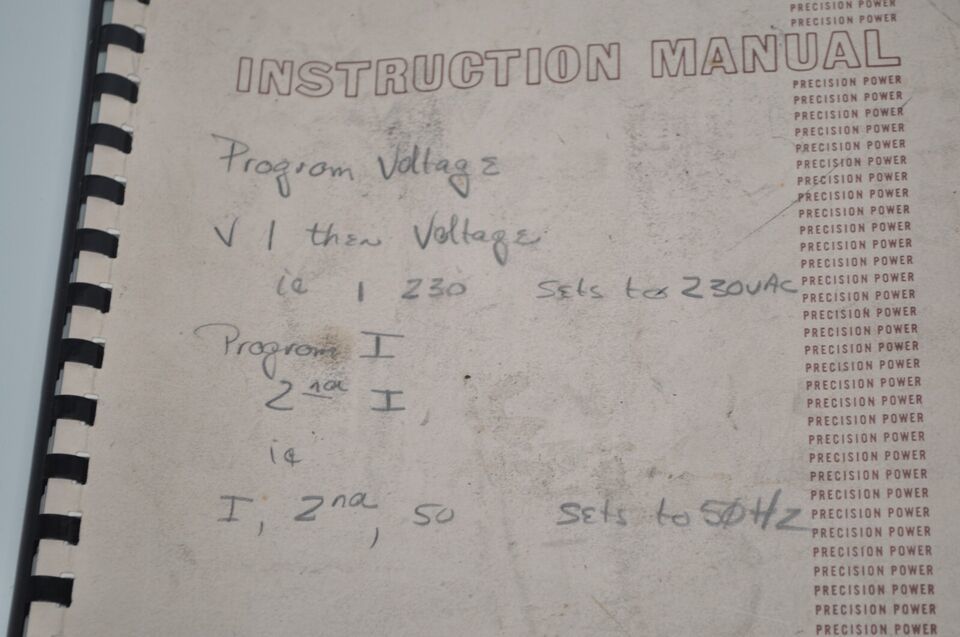 PRECISION POWER
PRECISION POWER
INSTRUCTION MANUAL
PRECISION POWER
PRECISION POWER
PRECISION POWER
PRECISION POWER
Program Voltage
PRECISION POWER
PRECISION POWER
PRECISION POWER
PRECISION POWER
PRECISION POWER
V 1 then Voltage
PRECISION POWER
PRECISION POWER
PRECISION POWER
PRECISION POWER
ie 1 230 sets to 230VAC
PRECISION POWER
PRECISION POWER
PRECISION POWER
Program I
PRECISION POWER
PRECISION POWER
2nd I
PRECISION POWER
PRECISION POWER
PRECISION POWER
ie
PRECISION POWER
PRECISION POWER
PRECISION POWER
I, 2nd, 50 sets to 50Hz
PRECISION POWER
PRECISION POWER
PRECISION POWER
PRECISION POWER
PRECISION POWER
PRECISION POWER
PRECISION POWER